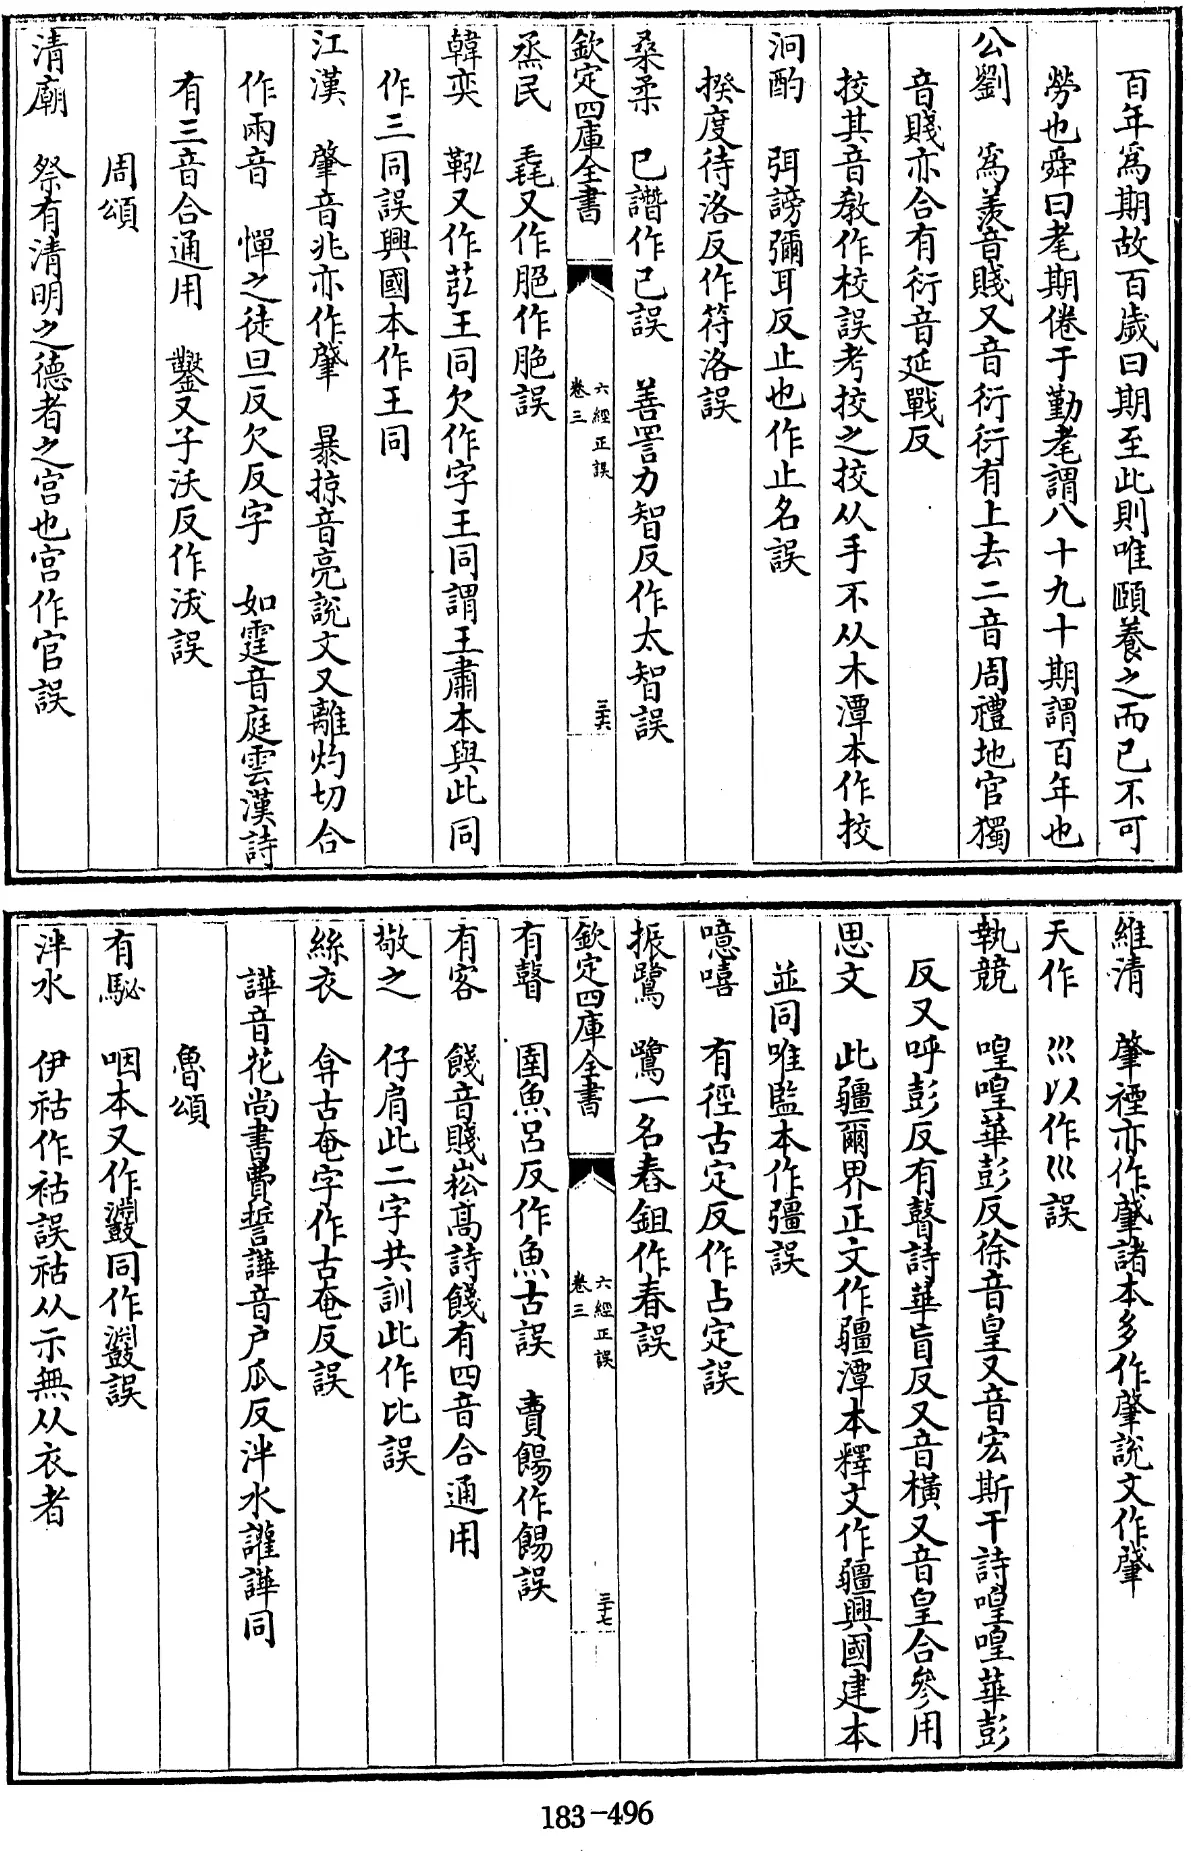 百年爲期故百歲曰期至此則唯頤養之而已不可
勞也舜曰耄期倦于勤耄謂八十九十期謂百年也
公劉　爲羨音賤又音衍衍有上去二音周禮地官獨
音賤亦合有衍音延戰反
挍其音教作校誤考挍之挍从手不从木潭本作挍
泂酌　弭謗彌耳反止也作止名誤
揆度待洛反作符洛誤
桑柔　已譖作己誤　善詈力智反作太智誤
欽定四庫全書　六經正誤　卷三　三十六
烝民　毳又作脃作脆誤
韓奕　靷又作䩙王同欠作字王同謂王肅本與此同
作三同誤興國本作王同
江漢　肇音兆亦作肈　暴掠音亮說文又離灼切合
作兩音　憚之徒旦反欠反字　如霆音庭雲漢詩
有三音合通用　鑿又子沃反作泼誤
周頌
清廟　祭有清明之德者之宮也宮作官誤
維清　肇禋亦作肈諸本多作肇說文作肈
天作　巛以作巛誤
執競　喤喤華彭反徐音皇又音宏斯干詩喤喤華彭
反又呼彭反有瞽詩華盲反又音橫又音皇合參用
思文　此疆爾界正文作疆潭本釋文作疆興國建本
並同唯監本作彊誤
噫嘻　有徑古定反作占定誤
振鷺　鷺一名舂鉏作春誤
欽定四庫全書　六經正誤　卷三　三十七
有瞽　圉魚呂反作魚古誤　賣餳作餳誤
有客　餞音賤崧高詩餞有四音合通用
敬之　仔肩此二字共訓此作比誤
絲衣　弇古奄字作古奄反誤
譁音花尚書費誓譁音戶瓜反泮水讙譁同
魯頌
有駜　咽本又作鼝同作鼝誤
泮水　伊祜作祜誤祜从示無从衣者
183-496